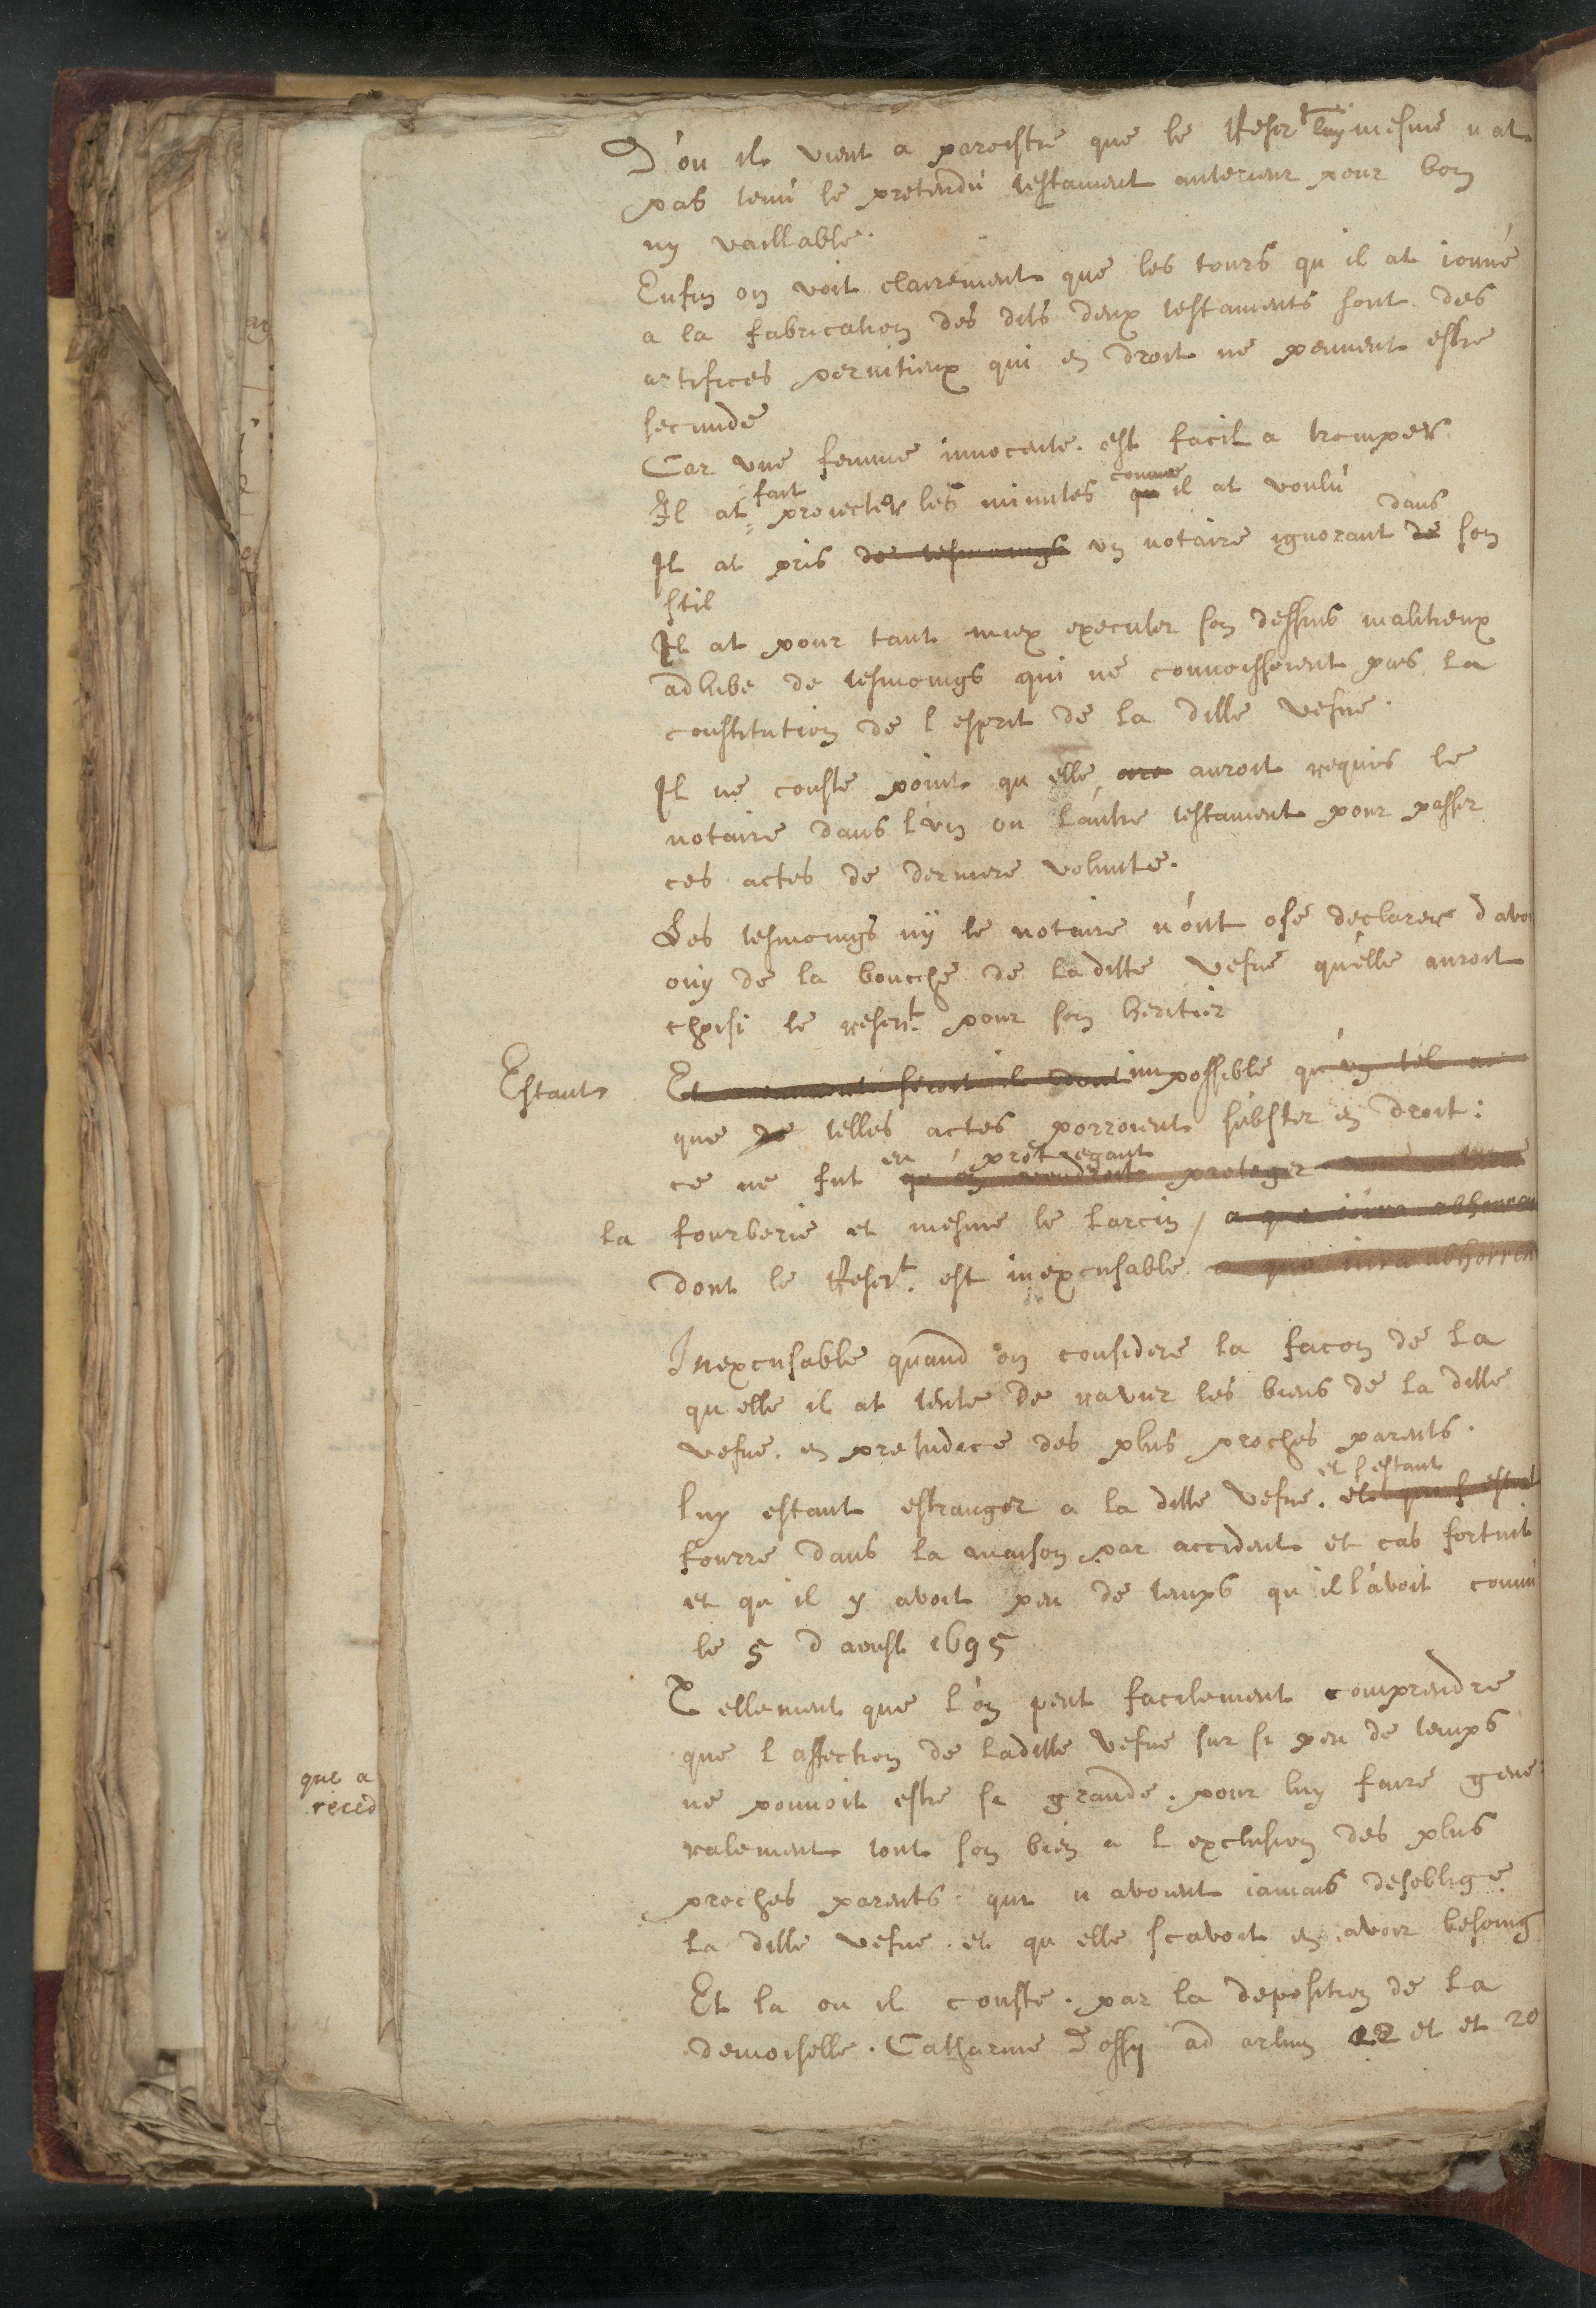 D'ou il vient a paroistre que le Reser.t luy mesme n at
pas tenu le pretendu testament anterieur pour bon
ny vaillable.
Enfin on voit clairement que les tours qu il at ioüué
a la fabrication des dits deux testaments sont des
artifices pernitieux qui en droit ne peuuent estre
secundé
Car vne femme innocente. est facil a tromper.
Il at fait proiecter les minutes comme il at voulu
Il at pris de tesmoings vn notaire ignorant dans son
stil
Il at pour tant miex executer son dessins malitieux
adhibe de tesmoings qui ne connoissoient pas la
constitution de l esprit de la ditte vefue.
Il ne conste point qu elle auroit requis le
notaire dans l'vn ou l'autre testament pour passer
ces actes de derniere volunté.
Les tesmoings nÿ le notaire n'ont osé declarer d avoi
ouÿ de la bouche de laditte vefue qu'elle auroit
choisi le reser.t pour son heritier
Estant impossible qu'vn tel
que de telles actes porroient subster en droit:
ce ne fut en protegeant proteger
la fourberie et mesme le larcin, a quo iura abhorren
dont le Reser.t est inexcusable. a quo iura abhorren
Inexcusable quand on considere la facon de la
qu elle il at tenté de ravier les biens de la ditte
vefue. en preiudice des plus proches parents.
luy estant estranger a la ditte vefue. et s'estant
fourré dans la maison par accident et cas fortuit
et qu il y avoit peu de temps qu il l'avoit connu
le 5 d aoust 1695
Tellement que l'on peut facilement comprendre
que l affection de laditte vefue sur si peu de temps
ne pouuoit estre si grande. pour luy faire gene
que a
reced
ralement tout son bien a l exclusion des plus
proches parents. qui n avoient iamais desoblige
la ditte vefue. et qu elle scavoit en avoir besoing
Et la ou il conste. par la deposition de la
demoiselle. Catharine Dessy ad arlum 12 et et 20